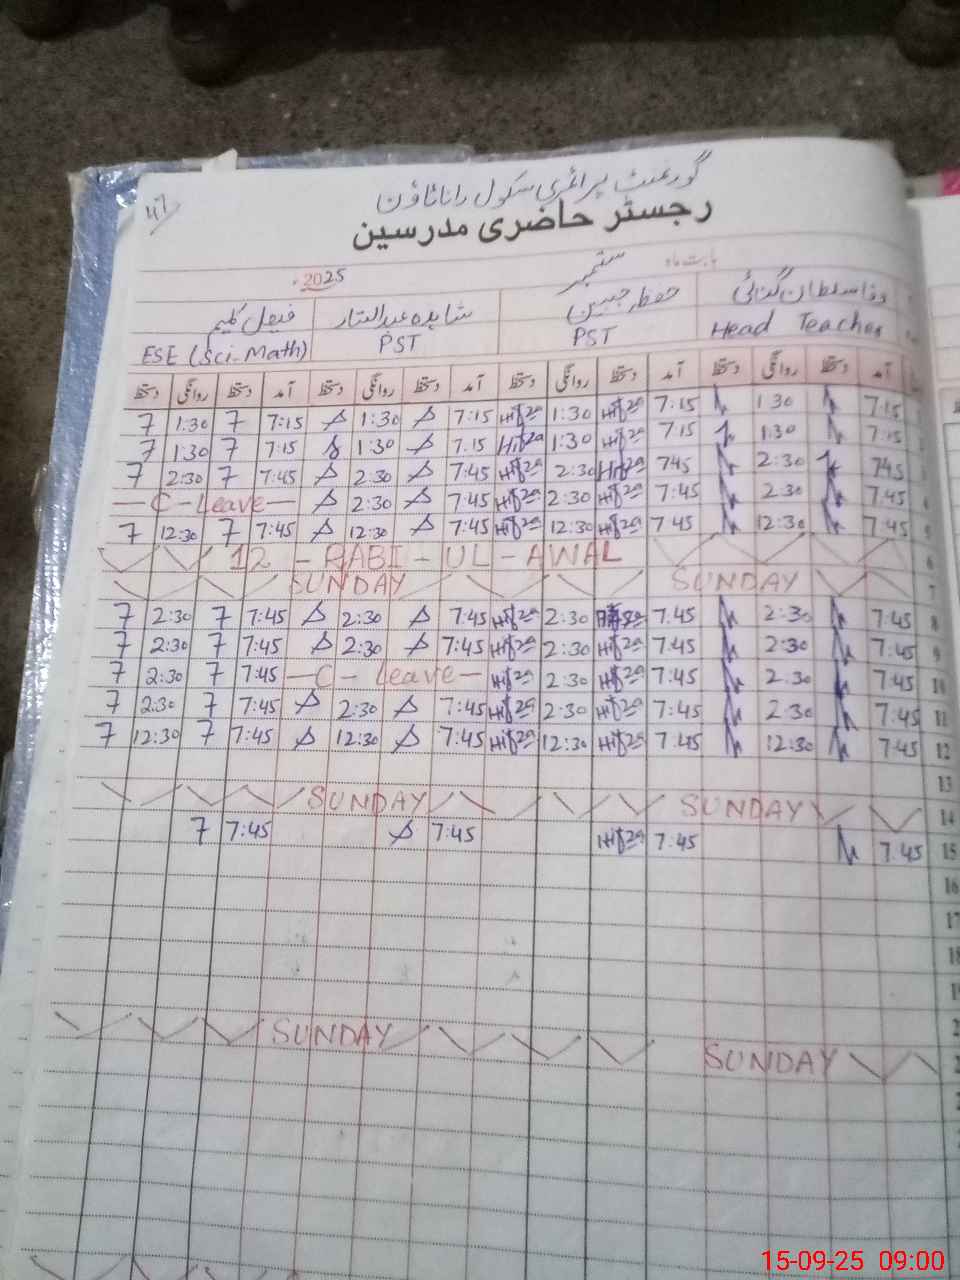 47
گورنمنٹ پرائمری سکول رانا ٹاؤن
رجسٹر حاضری مدرسین
بابت ماہ ستمبر 2025
فیصل کلیم شاہدہ عبدالستار جبین
ESE (Sci-Math) PST PST Head Teacher
دستخط روانگی دستخط آمد دستخط روانگی دستخط آمد دستخط روانگی دستخط آمد دستخط روانگی دستخط آمد
7 1:30 7 7:15 1:30 7:15 1:30 7:15 1 30 7:15
7 1:30 7 7:15 1:30 7.15 1:30 7:15 1:30 7:15
7 2:30 7 7:45 2:30 7:45 2:30 745 2:30 745
— C - Leave — 2:30 7:45 2:30 7:45 2:30 7:45 4
7 12:30 7 7:45 12:30 7:45 12:30 7 45 12:30 7:45 5
12 - RABI - UL - AWAL 6
SUNDAY SUNDAY 7
7 2:30 7 7:45 2:30 7:45 2:30 7:45 2:30 7:45 8
7 2:30 7 7:45 2:30 7:45 2:30 7:45 2:30 7:45 9
7 2:30 7 7:45 — C - Leave — 2:30 7:45 2:30 7:45 10
7 2:30 7 7:45 2:30 7:45 2:30 7:45 2:30 7:45 11
7 12:30 7 7:45 12:30 7:45 12:30 7:45 12:30 7:45 12
13
SUNDAY SUNDAY 14
7 7:45 7:45 7:45 7.45 15
16
17
18
SUNDAY
SUNDAY
15-09-25 09:00